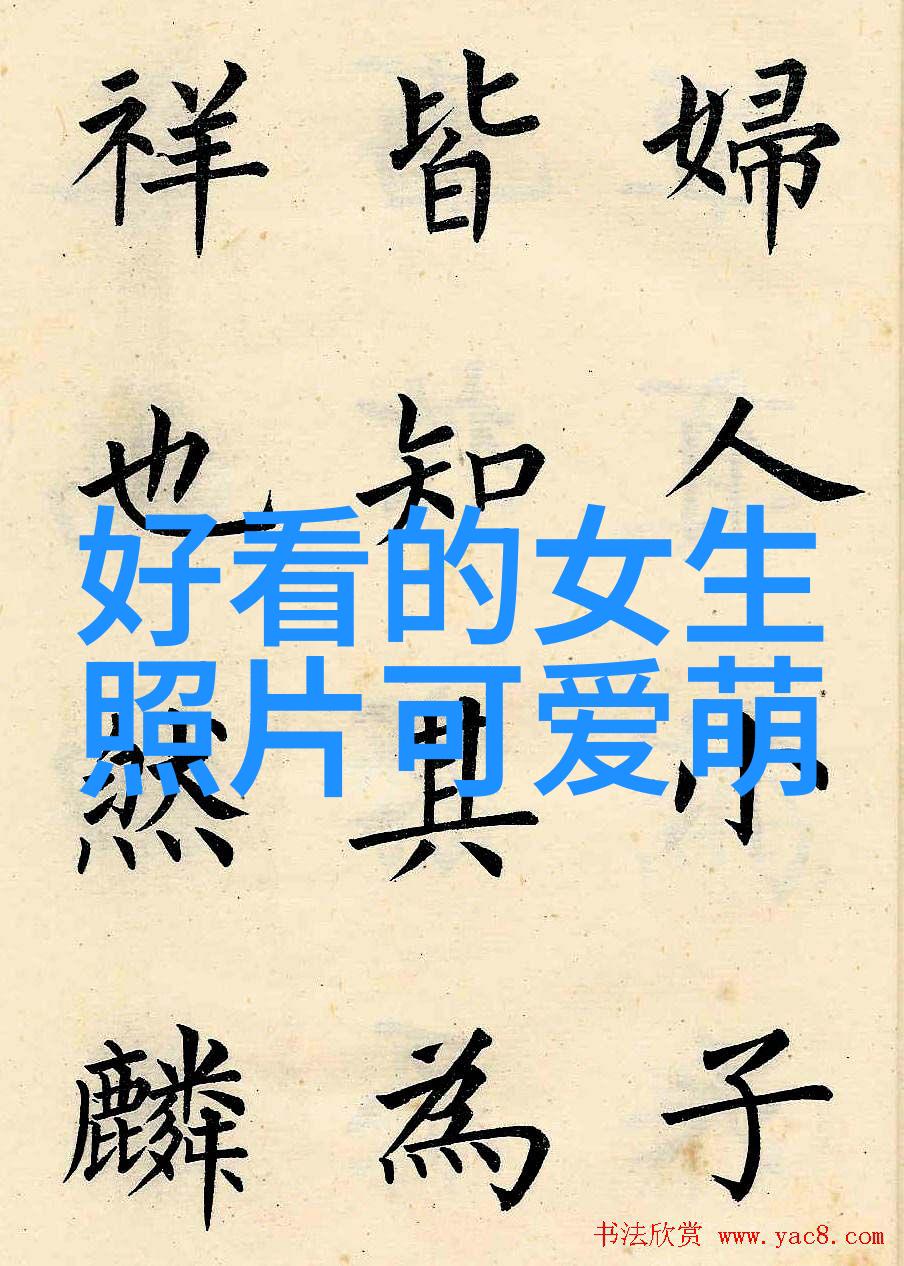 婦人小子
皆知其為
祥也然麟
好看的女生
照片可爱萌
书法欣赏 www.yac8.com